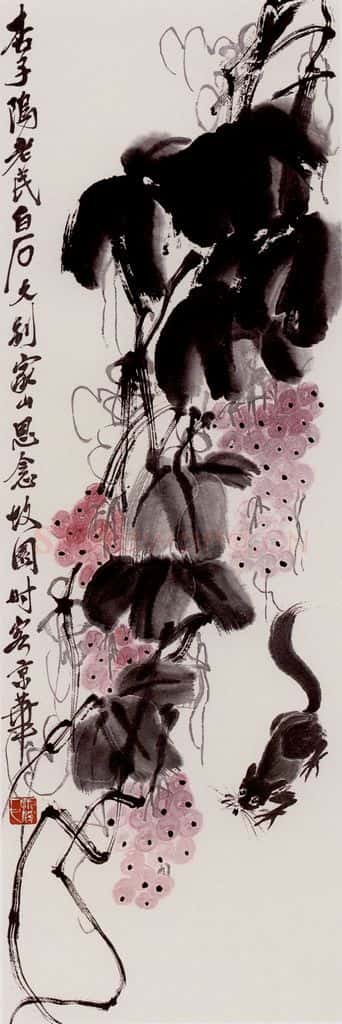 杏子隖老民白石久别家山思念故園时客京華